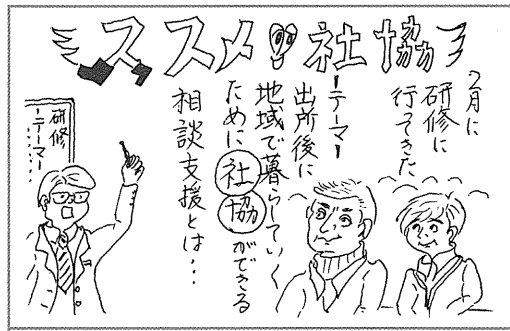 ススメ!社協
2月に
研修に
行ってきた
ーテーマー
出所後に
地域で暮らしていく
ために社協ができる
相談支援とは…
研修
ーテーマー